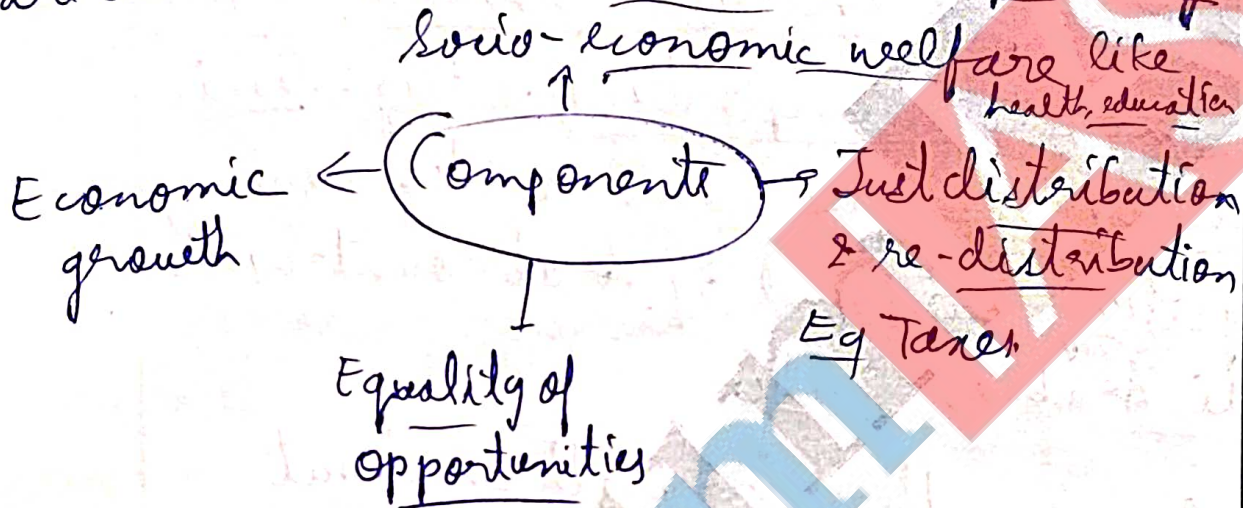 Socio-economic welfare like
health, education
Components
Economic
growth
Just distribution
& re-distribution
Eg Taxes.
Equality of
opportunities